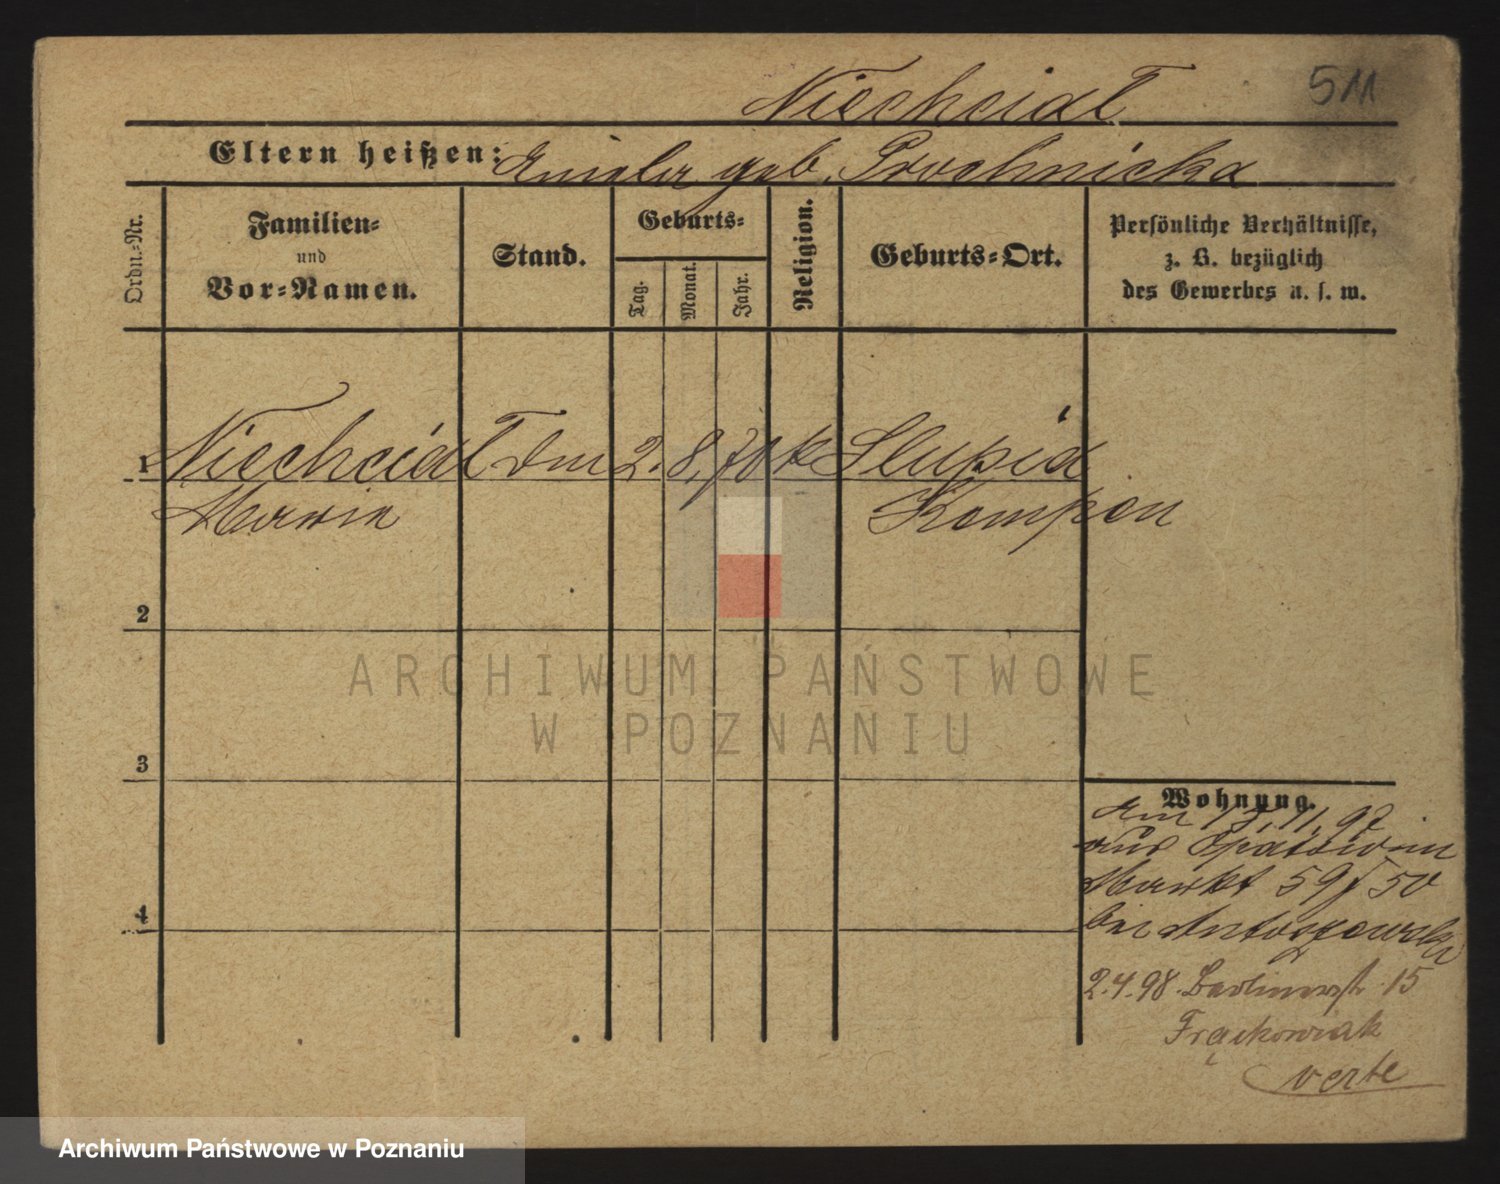 Niechcial
511
Eltern heißen:
geb. Prochnicka
Ordn.=Nr.
Familien=
und
Vor=Namen.
Stand.
Geburts=
Tag.
Monat.
Jahr.
Religion.
Geburts=Ort.
Persönliche Verhältnisse,
z. B. bezüglich
des Gewerbes u. s. w.
1 Niechcial 2. 8. 70 k Slupia
Marie Kempen
2
3
4
Wohnung.
11. 97
aus Opatow in
Markt 59 50
bei
2.4.98. Berlinerstr. 15
Frąckowiak
verte
ARCHIWUM PAŃSTWOWE
W POZNANIU
Archiwum Państwowe w Poznaniu